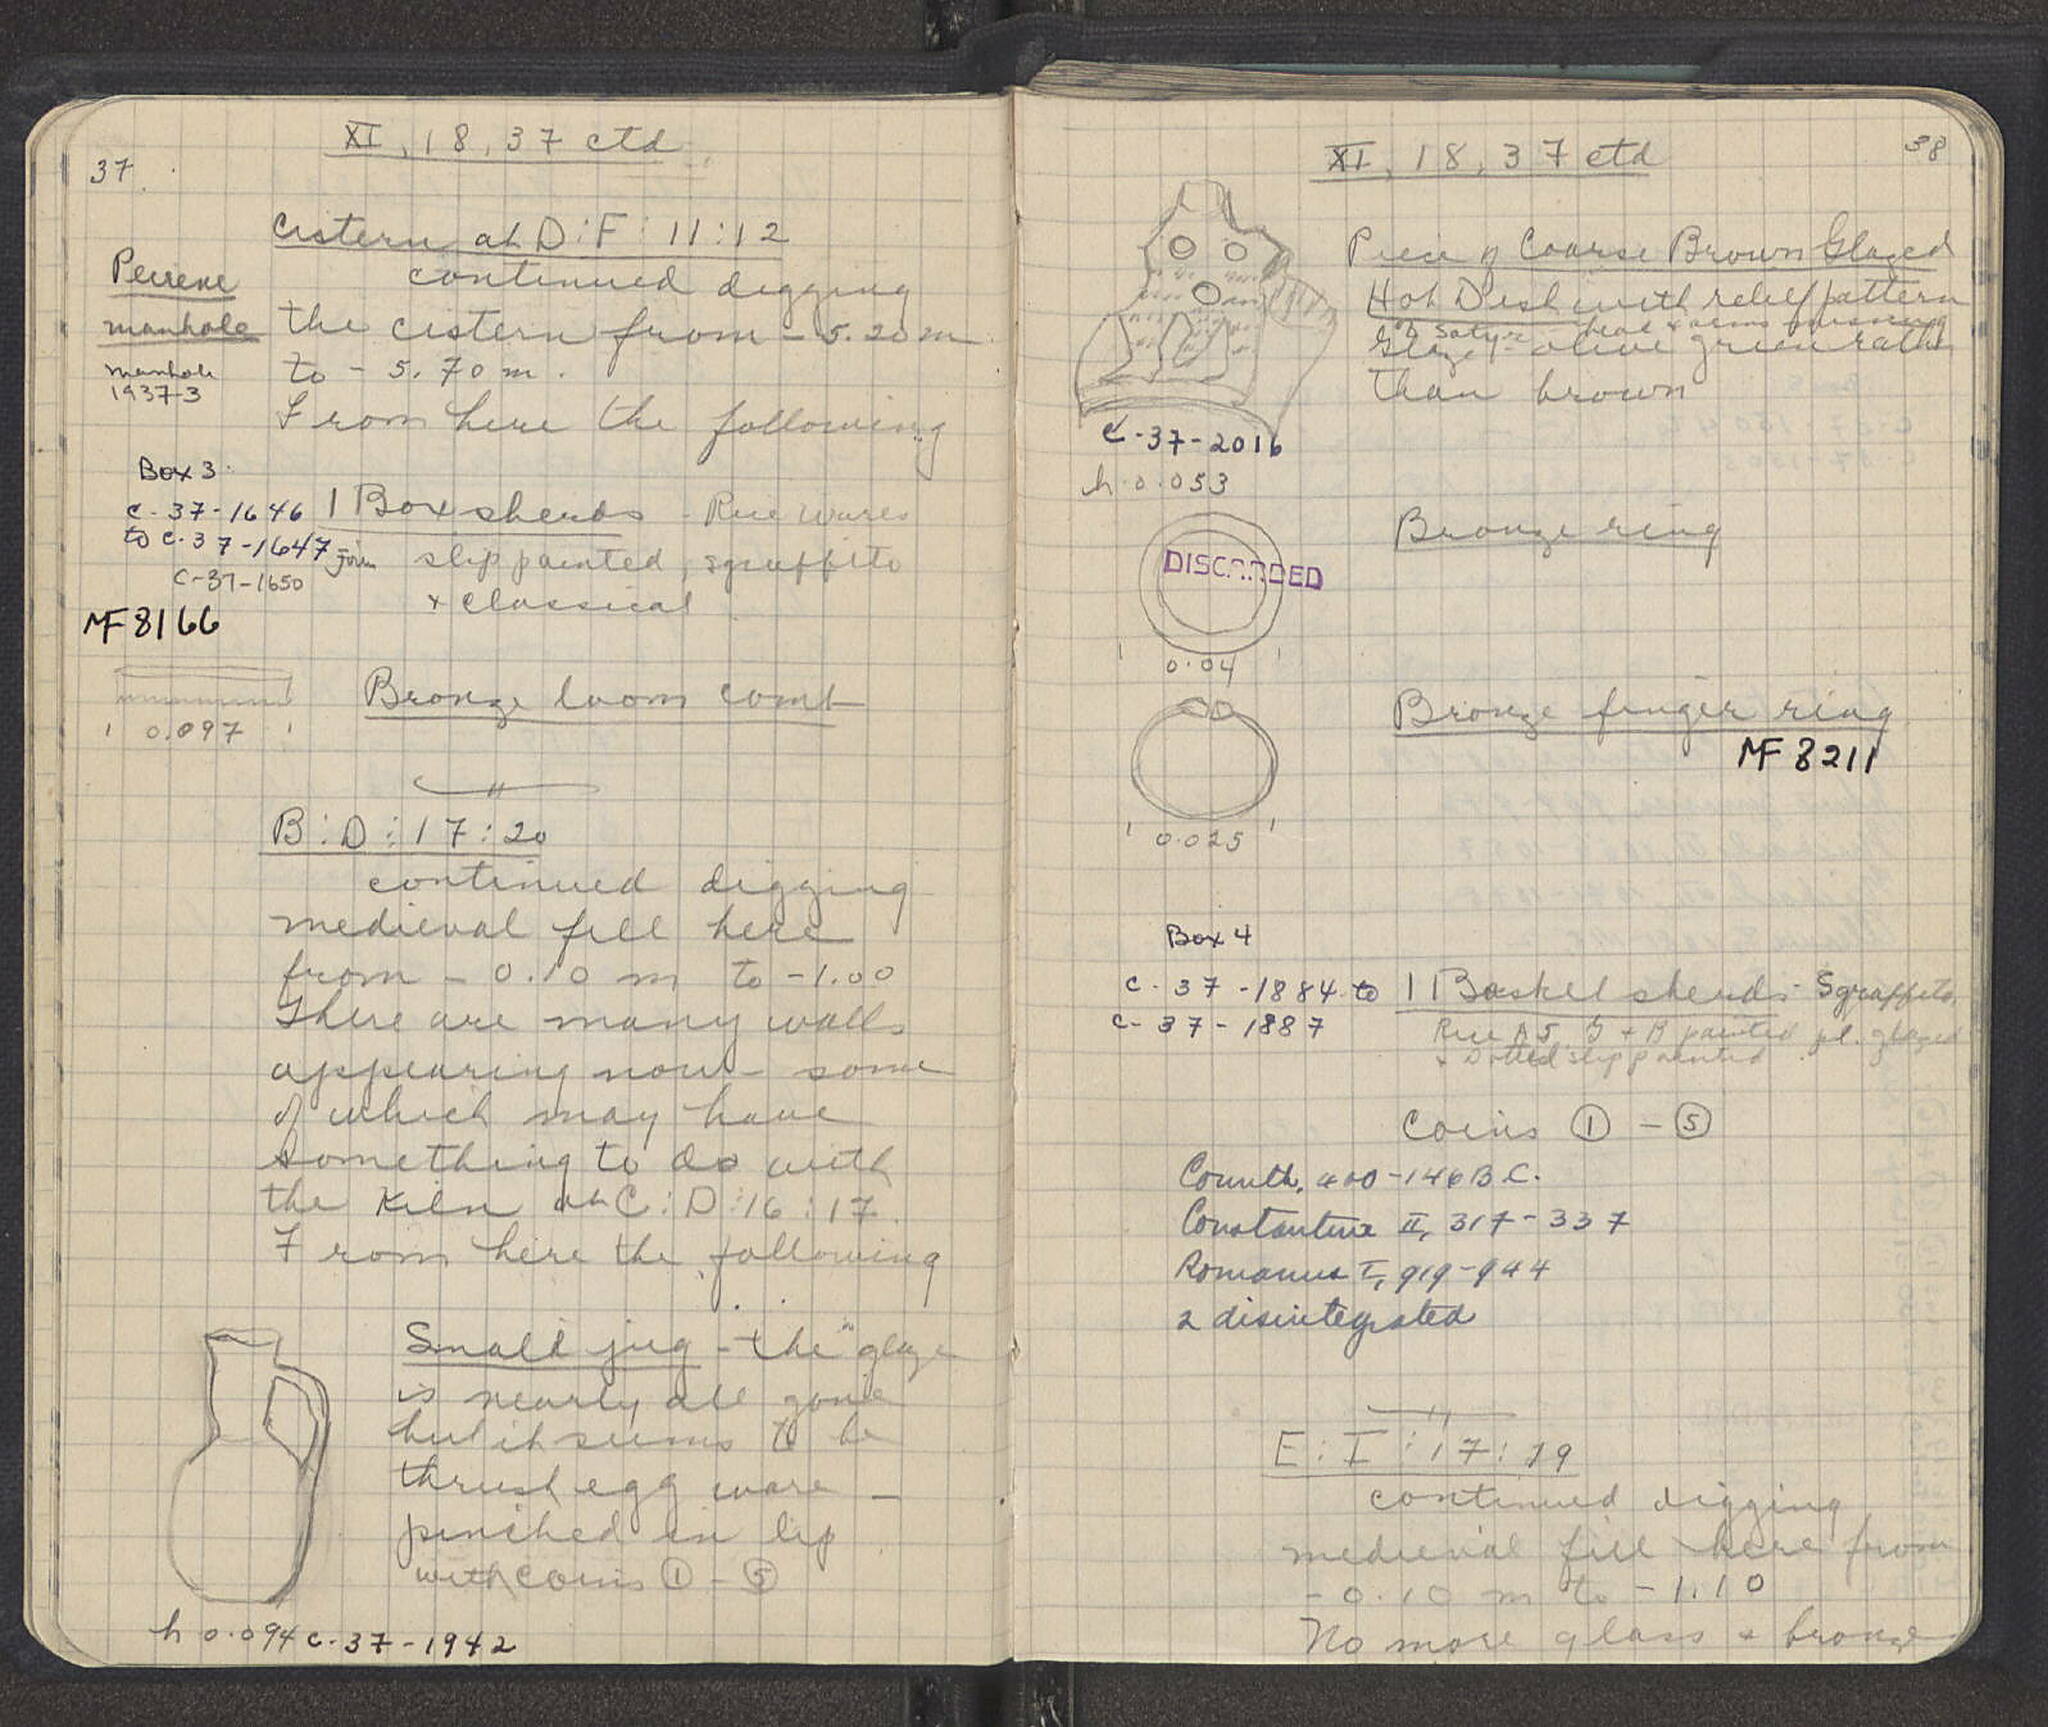 37
XI, 18, 37 ctd
Cistern at D:F:11:12
continued digging
Peirene
manhole
the cistern from - 5.20 m
manhole
1937-3
to - 5.70 m.
From here the following
Box 3
C-37-1646
to C-37-1647
Join
C-37-1650
1 Box sherds - Rice wares
slip painted, sgraffito
+ Classical
MF 8166
Bronze loom comb
0.097
B:D:17:20
continued digging
medieval fill here
from - 0.10 m to -1.00
There are many walls
appearing now - some
of which may have
something to do with
the Kiln at C:D:16:17.
From here the following
Small jug - the glaze
is nearly all gone
but it seems to be
thrush egg ware -
pinched in lip
with coins ① - ⑤
h 0.094 C-37-1942
38
XI, 18, 37 ctd
Piece of Coarse Brown Glazed
Hot Dish with relief pattern
of Satyr - head + arms missing
Glaze - olive green rather
than brown
C-37-2016
h 0.053
Bronze ring
DISCARDED
0.04
Bronze finger ring
MF 8211
0.025
Box 4
C-37-1884 to
C-37-1887
1 Basket sherds - Sgraffito,
Rice A5, G + B painted pl. glazed
+ Dotted slip painted
Coins ① - ⑤
Corinth, 400-146 B.C.
Constantine II, 317-337
Romanus I, 919-944
2 disintegrated
E:I:17:19
continued digging
medieval fill here from
- 0.10 m to - 1.10
No more glass + bronze